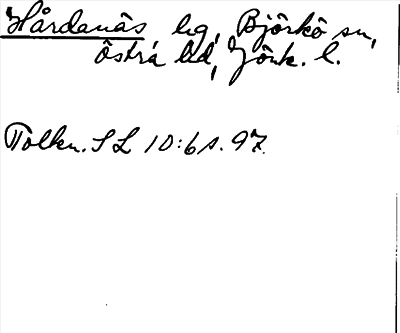 Hårdanäs, hg, Björkö sn,
Östra hd, Jönk. l.
Tolkn. SL 10:6 s. 97.